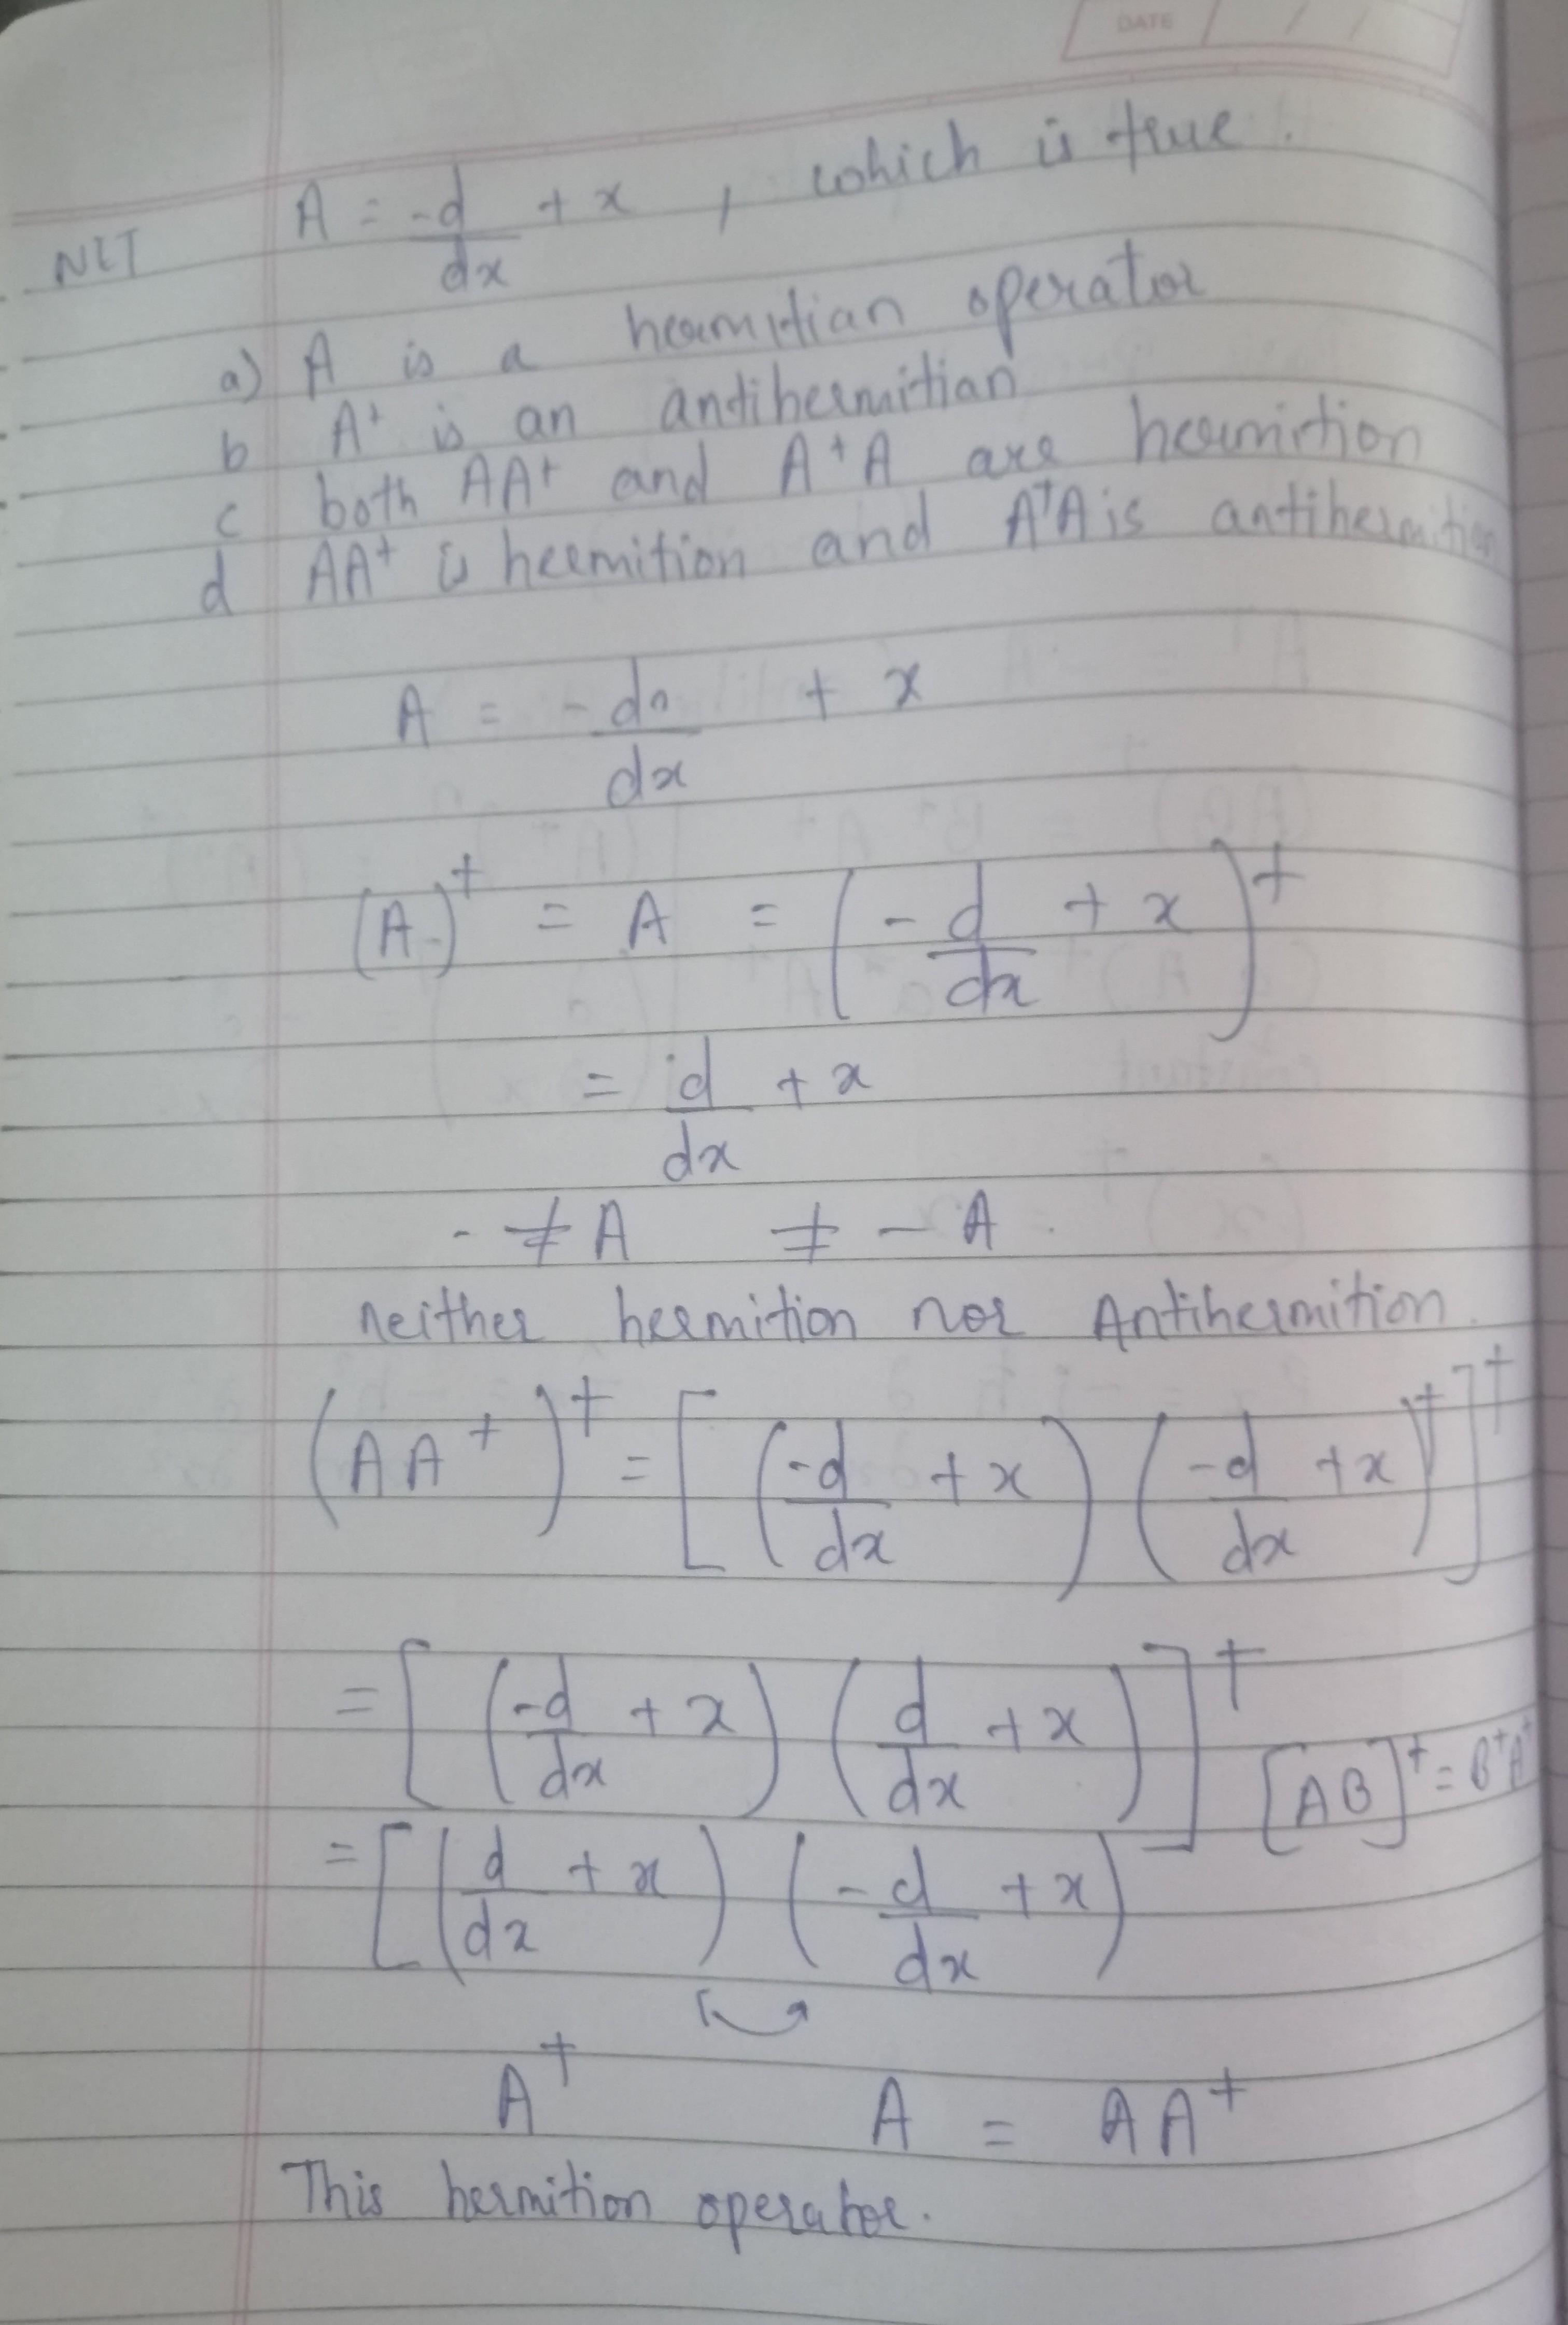 DATE / /
NET A = -d/dx + x , which is true.
a) A is a hermitian operator
b A⁺ is an antihermitian
c both AA⁺ and A⁺A are hermition
d AA⁺ is hermition and A⁺A is antihermition
A = -d/dx + x
(A)⁺ = A = (-d/dx + x)⁺
= d/dx + x
≠ A ≠ -A
neither hermition nor Antihermition.
(AA⁺)⁺ = [(-d/dx + x) (-d/dx + x)⁺]⁺
= [(-d/dx + x) (d/dx + x)]⁺ [AB]⁺ = B⁺A⁺
= [(d/dx + x) (-d/dx + x)
A⁺ A = AA⁺
This hermition operator.